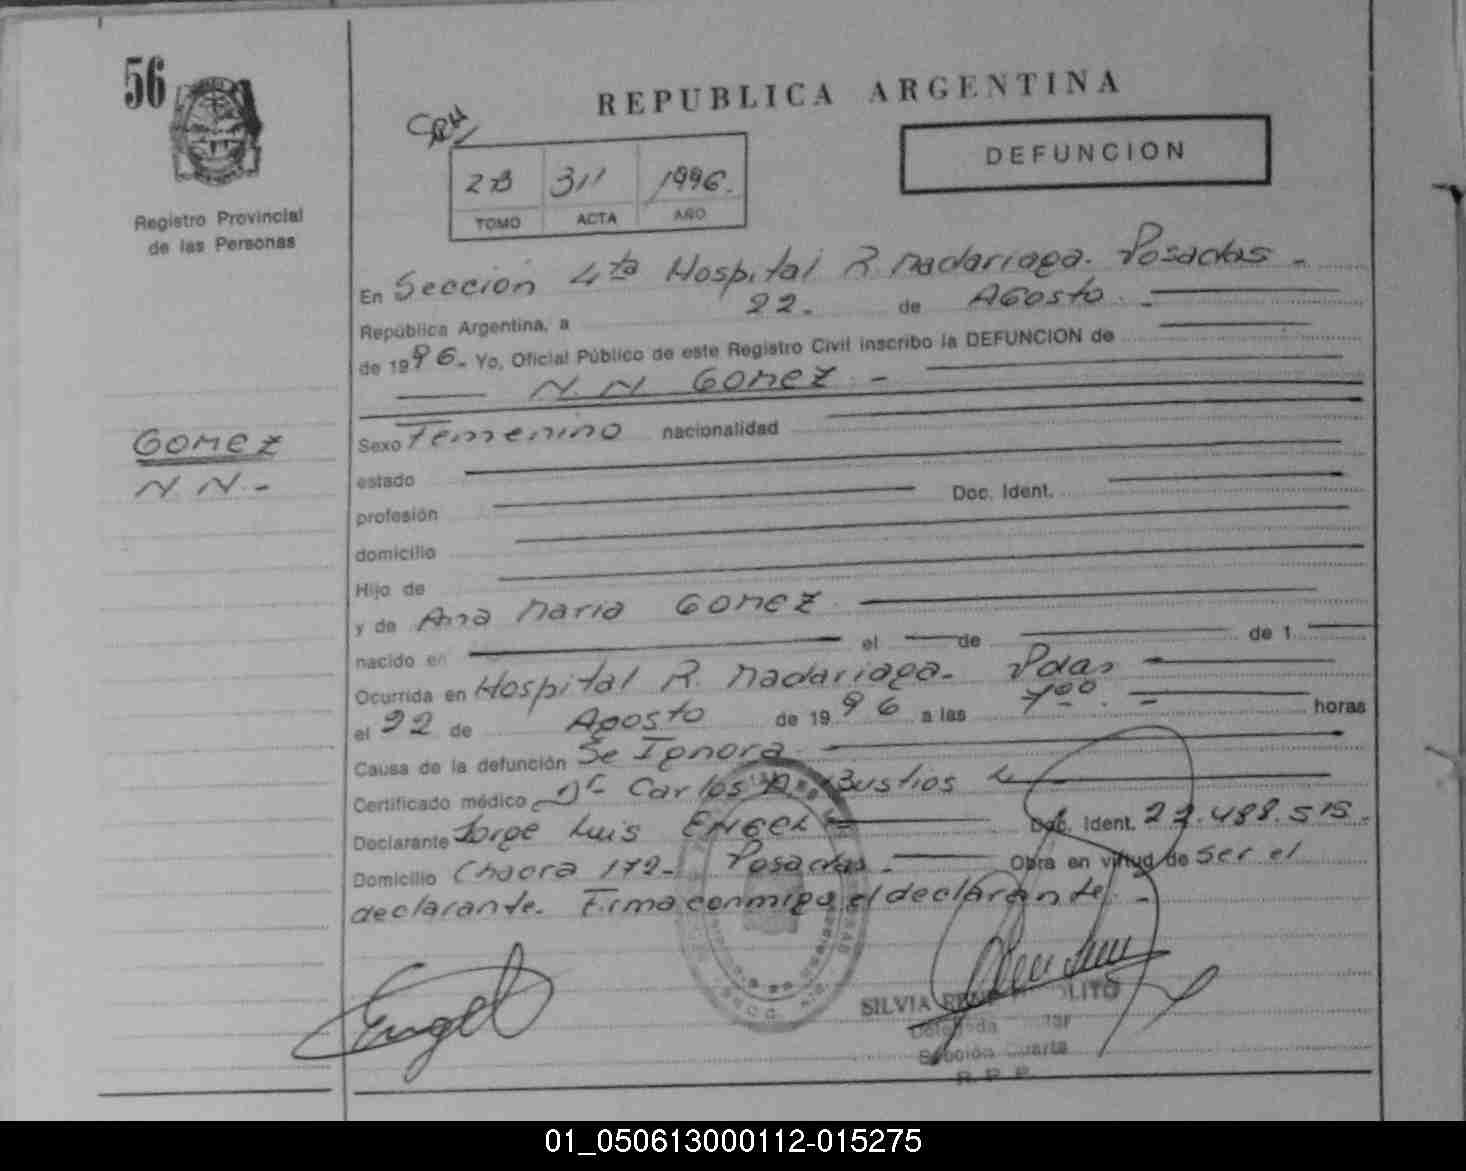 56
REPUBLICA ARGENTINA
DEFUNCION
2B 311 1996.
TOMO ACTA AÑO
Registro Provincial
de las Personas
En Sección 4ta Hospital R. Madariaga. Posadas -
República Argentina, a 22. de Agosto. -
de 1996. Yo, Oficial Público de este Registro Civil inscribo la DEFUNCION de
N. N. GOMEZ. -
GOMEZ
N. N. -
Sexo Femenino nacionalidad
estado
profesión Doc. Ident.
domicilio
Hijo de
y de Ana Maria GOMEZ.
nacido en el de de 1
Ocurrida en Hospital R. Madariaga. Pdas
el 22 de Agosto de 1996 a las 7.00. - horas
Causa de la defunción Se Ignora
Certificado médico Dr Carlos Bustios
Declarante Jorge Luis ENGEL Doc. Ident. 22.488.515.
Domicilio Chacra 172 - Posadas - Obra en virtud de ser el
declarante. Firma conmigo el declarante. -
Engel
SILVIA
Sección Cuarta
R. P. P.
01_050613000112-015275